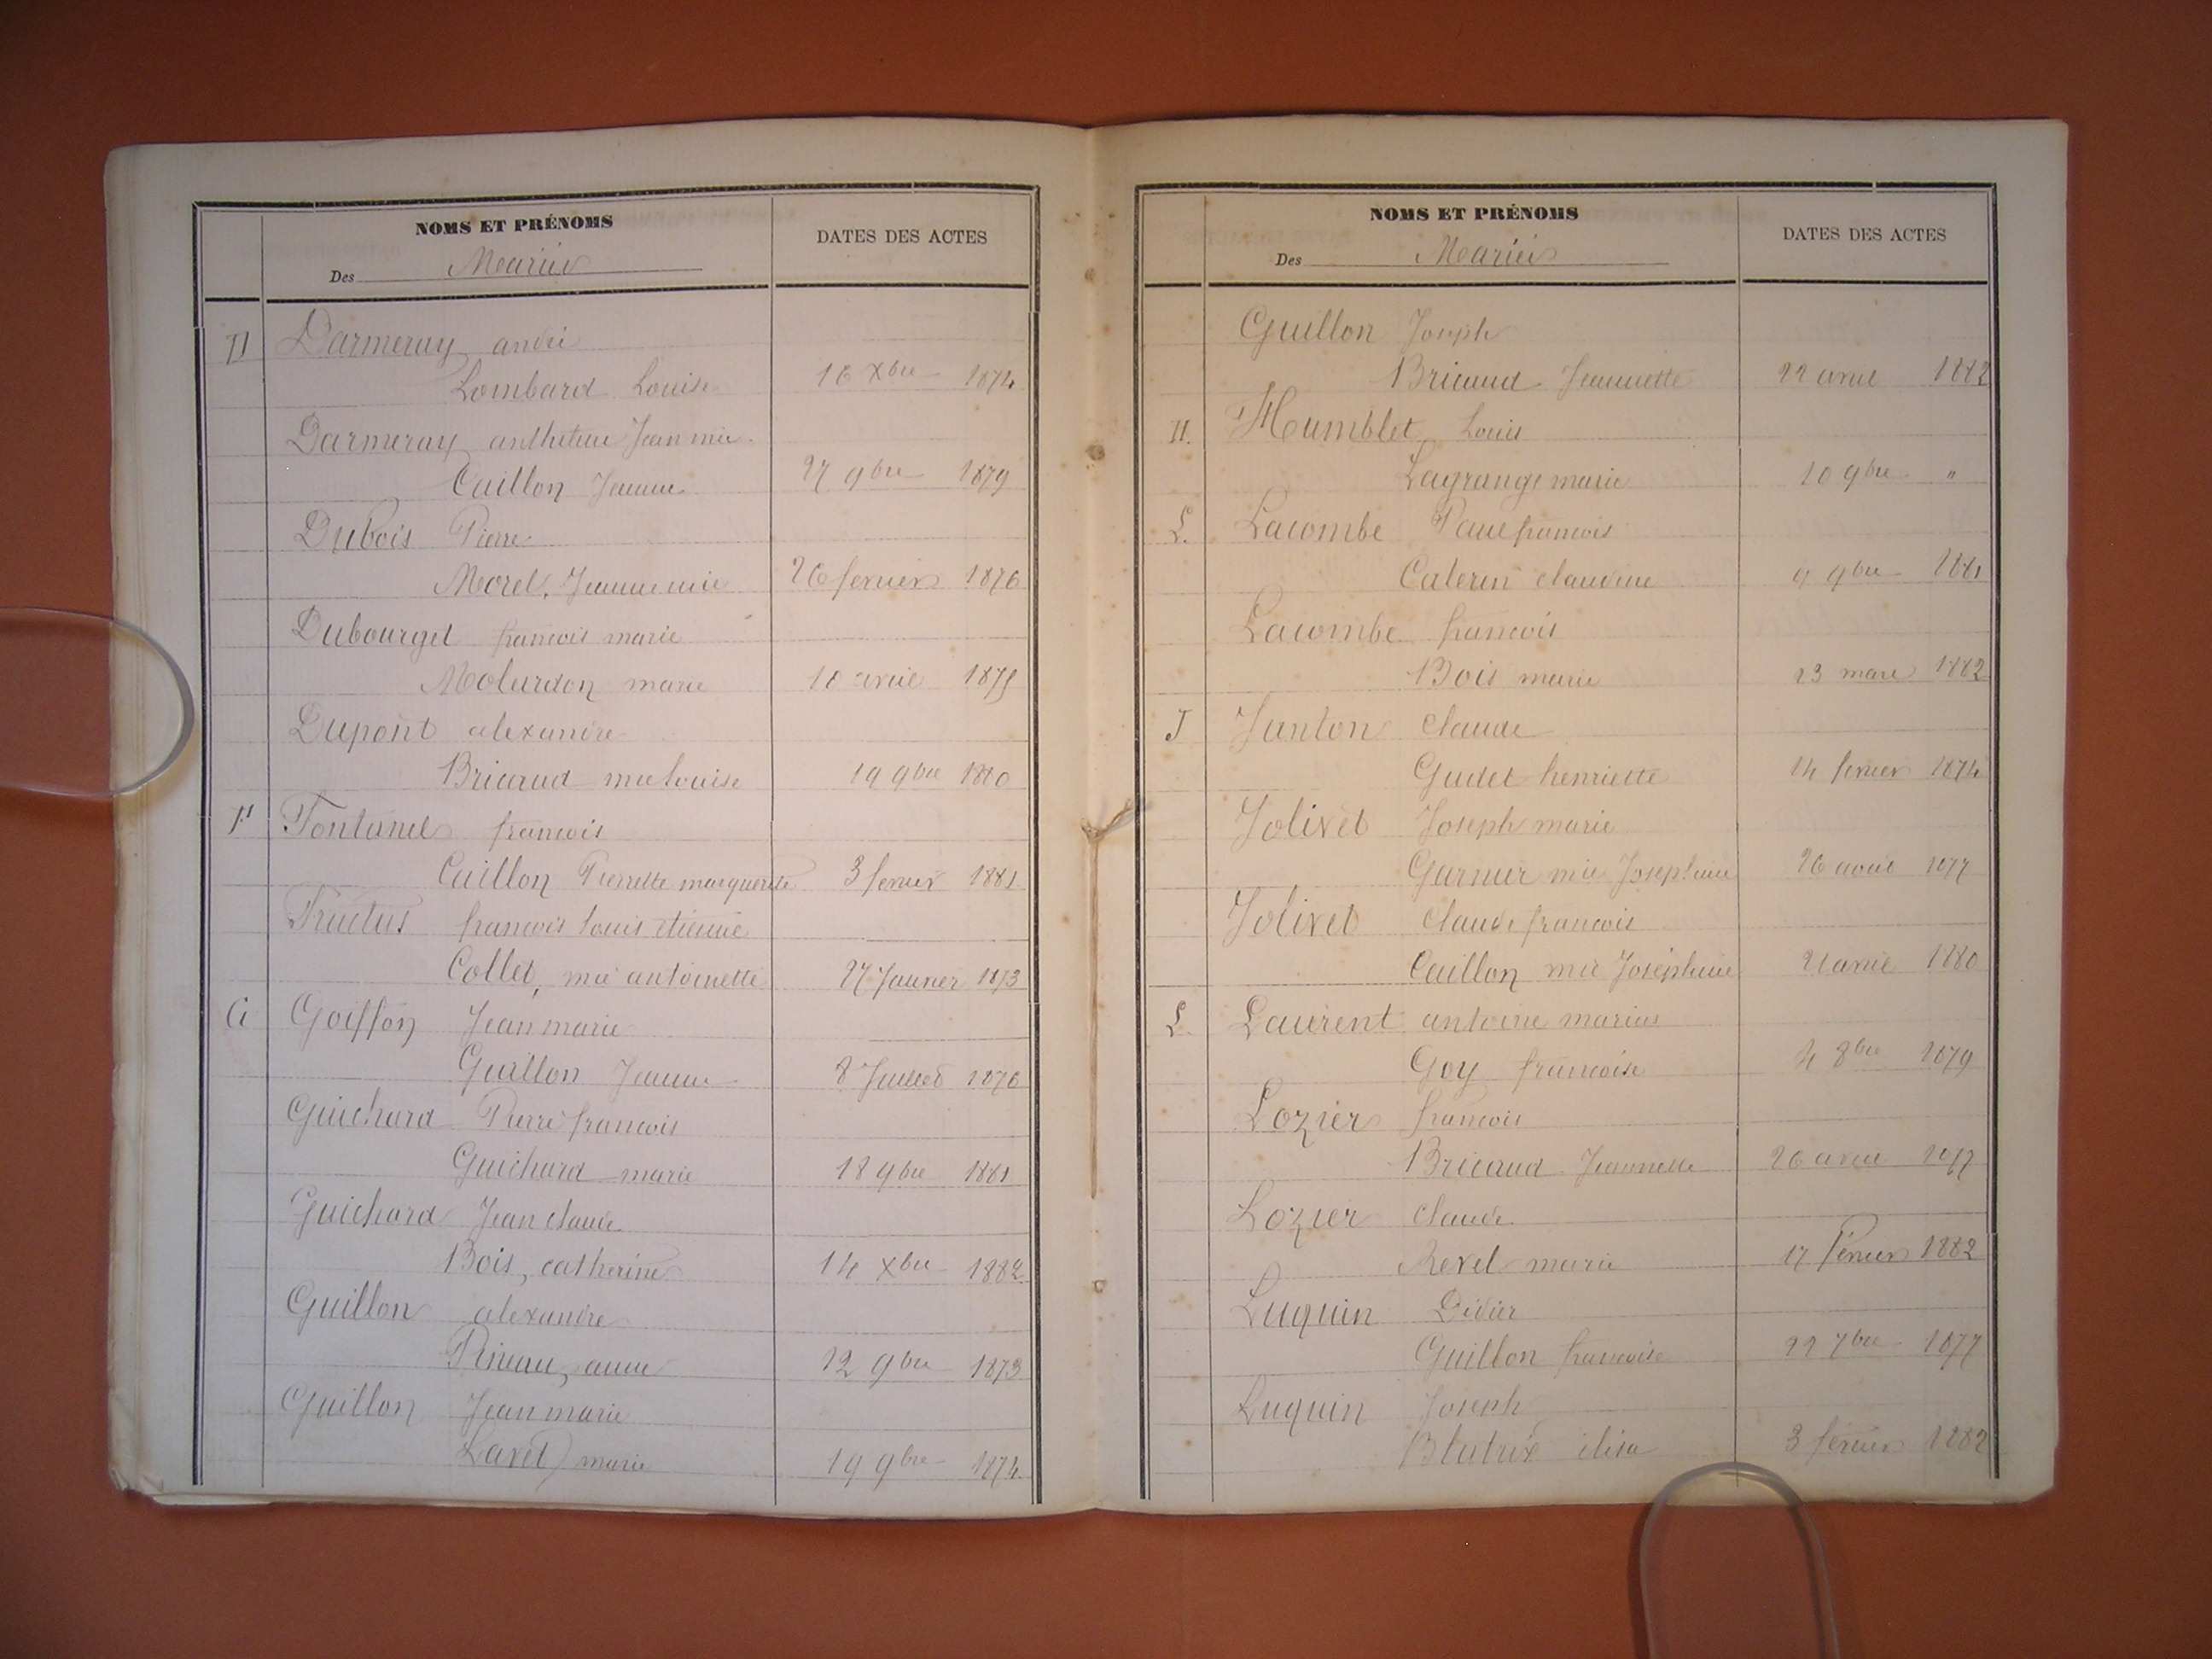 NOMS ET PRÉNOMS
Des Mariés
DATES DES ACTES
D Darmeray andré
Lombard Louise 16 Xbre 1874
Darmeray anthelme Jean mie
Caillon Jeanne 27 9bre 1879
Dubois Pierre
Morel, Jeanne mie 26 fevrier 1876
Dubourget francois marie
marie 10 avril 1875
Dupont alexandre
Bricaud mie louise 19 9bre 1880
F Fontanel francois
Caillon Pierrette marguerite 3 fevrier 1881
Fructus francois louis etienne
Collet, mie antoinette 27 Janvier 1873
G Goiffon Jean marie
Guillon Jeanne 8 Juillet 1876
Guichard Pierre francois
Guichard marie 18 9bre 1881
Guichard Jean claude
Bois, catherine 14 Xbre 1882
Guillon alexandre
Pineau, anne 12 9bre 1873
Guillon Jean marie
Lavet marie 19 9bre 1874
NOMS ET PRÉNOMS
Des Mariés
DATES DES ACTES
Guillon Joseph
Bricaud Jeannette 22 avril 1882
H. Humblet Louis
Lagrange marie 10 9bre "
L. Lacombe Paul francois
Caterin claudine 9 9bre 1881
Lacombe francois
Bois marie 23 mars 1882
J Janton Claude
Gudet henriette 14 fevrier 1874
Jolivet Joseph marie
Garnier mie Josephine 26 avril 1877
Jolivet Claude francois
Caillon mie Joséphine 21 avril 1880
L. Laurent antoine marius
Goy francoise 4 8bre 1879
Lozier francois
Bricaud Jeannette 26 avril 1877
Lozier Claude
Revel marie 17 Février 1882
Luquin Didier
Guillon francoise 22 7bre 1877
Luquin Joseph
Blatrix élisa 3 février 1882